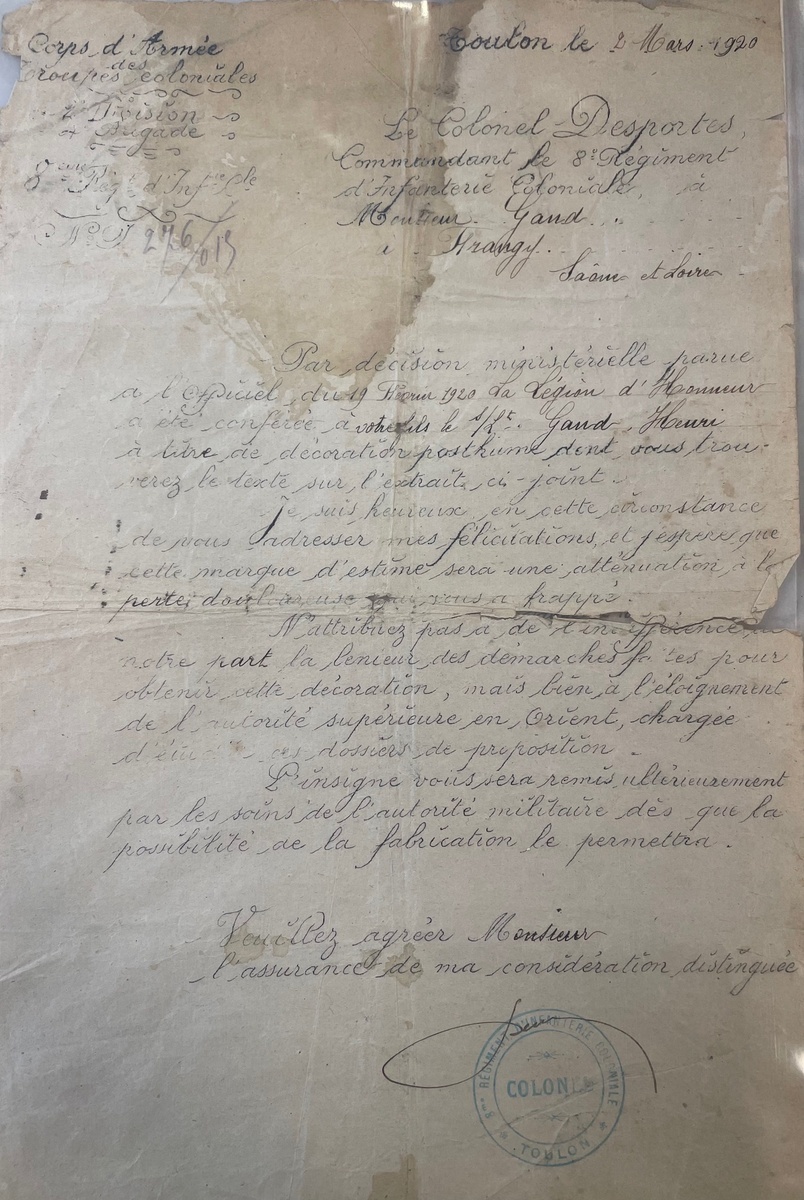 Corps d'Armée
des
Troupes coloniales
2e Division
4e Brigade
8ème Régt d'Infrie Cle
No 276/013
Toulon le 2 Mars 1920
Le Colonel Desportes,
Commandant le 8e Régiment
d'Infanterie Coloniale, à
Monsieur Gaud
à
Saône et Loire
Par décision ministérielle parue
à l'Officiel du 19 Février 1920 La Légion d'Honneur
a été conférée à votre fils le s/Lt Gaud, Henri
à titre de décoration posthume dont vous trou-
verez le texte sur l'extrait ci-joint.
Je suis heureux en cette circonstance
de vous adresser mes félicitations, et j'espère que
cette marque d'estime sera une atténuation à la
perte douloureuse qui vous a frappé.
N'attribuez pas à de l'indifférence de
notre part la lenteur des démarches faites pour
obtenir cette décoration, mais bien à l'éloignement
de l'autorité supérieure en Orient, chargée
ces dossiers de proposition.
L'insigne vous sera remis ultérieurement
par les soins de l'autorité militaire dès que la
possibilité de la fabrication le permettra.
Veuillez agréer Monsieur
l'assurance de ma considération distinguée
8me RÉGIMENT D'INFANTERIE COLONIALE
COLONEL
TOULON